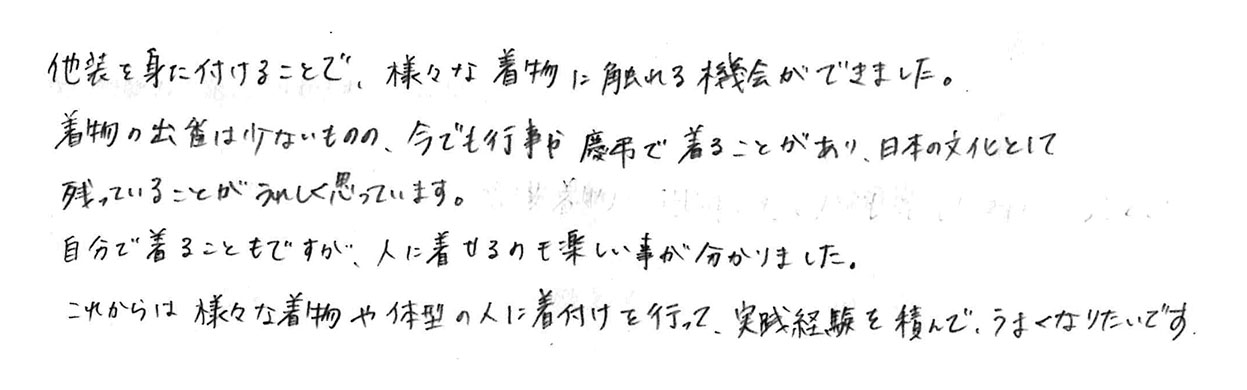 他装を身に付けることで、様々な着物に触れる機会ができました。
着物の出番は少ないものの、今でも行事や慶弔で着ることがあり、日本の文化として
残っていることがうれしく思っています。
自分で着ることもですが、人に着せるのも楽しい事が分かりました。
これからは様々な着物や体型の人に着付けを行って、実践経験を積んで、うまくなりたいです